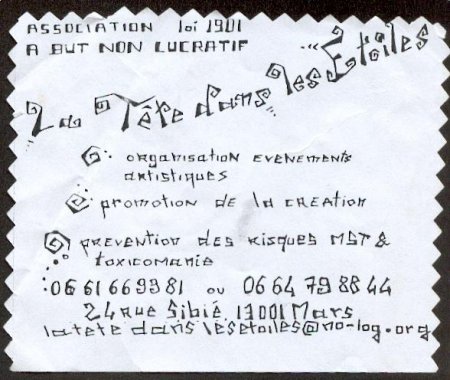 ASSOCIATION loi 1901
A BUT NON LUCRATIF
La Tête dans les Etoiles
organisation EVENEMENTS
artistiques
promotion DE la CREATION
PREVENTION DES RISQUES MST &
toxicomanie
06 61 66 99 81 ou 06 64 79 88 44
24 rue Sibié, 13001 Mars
latete dans lesetoiles@no-log.org